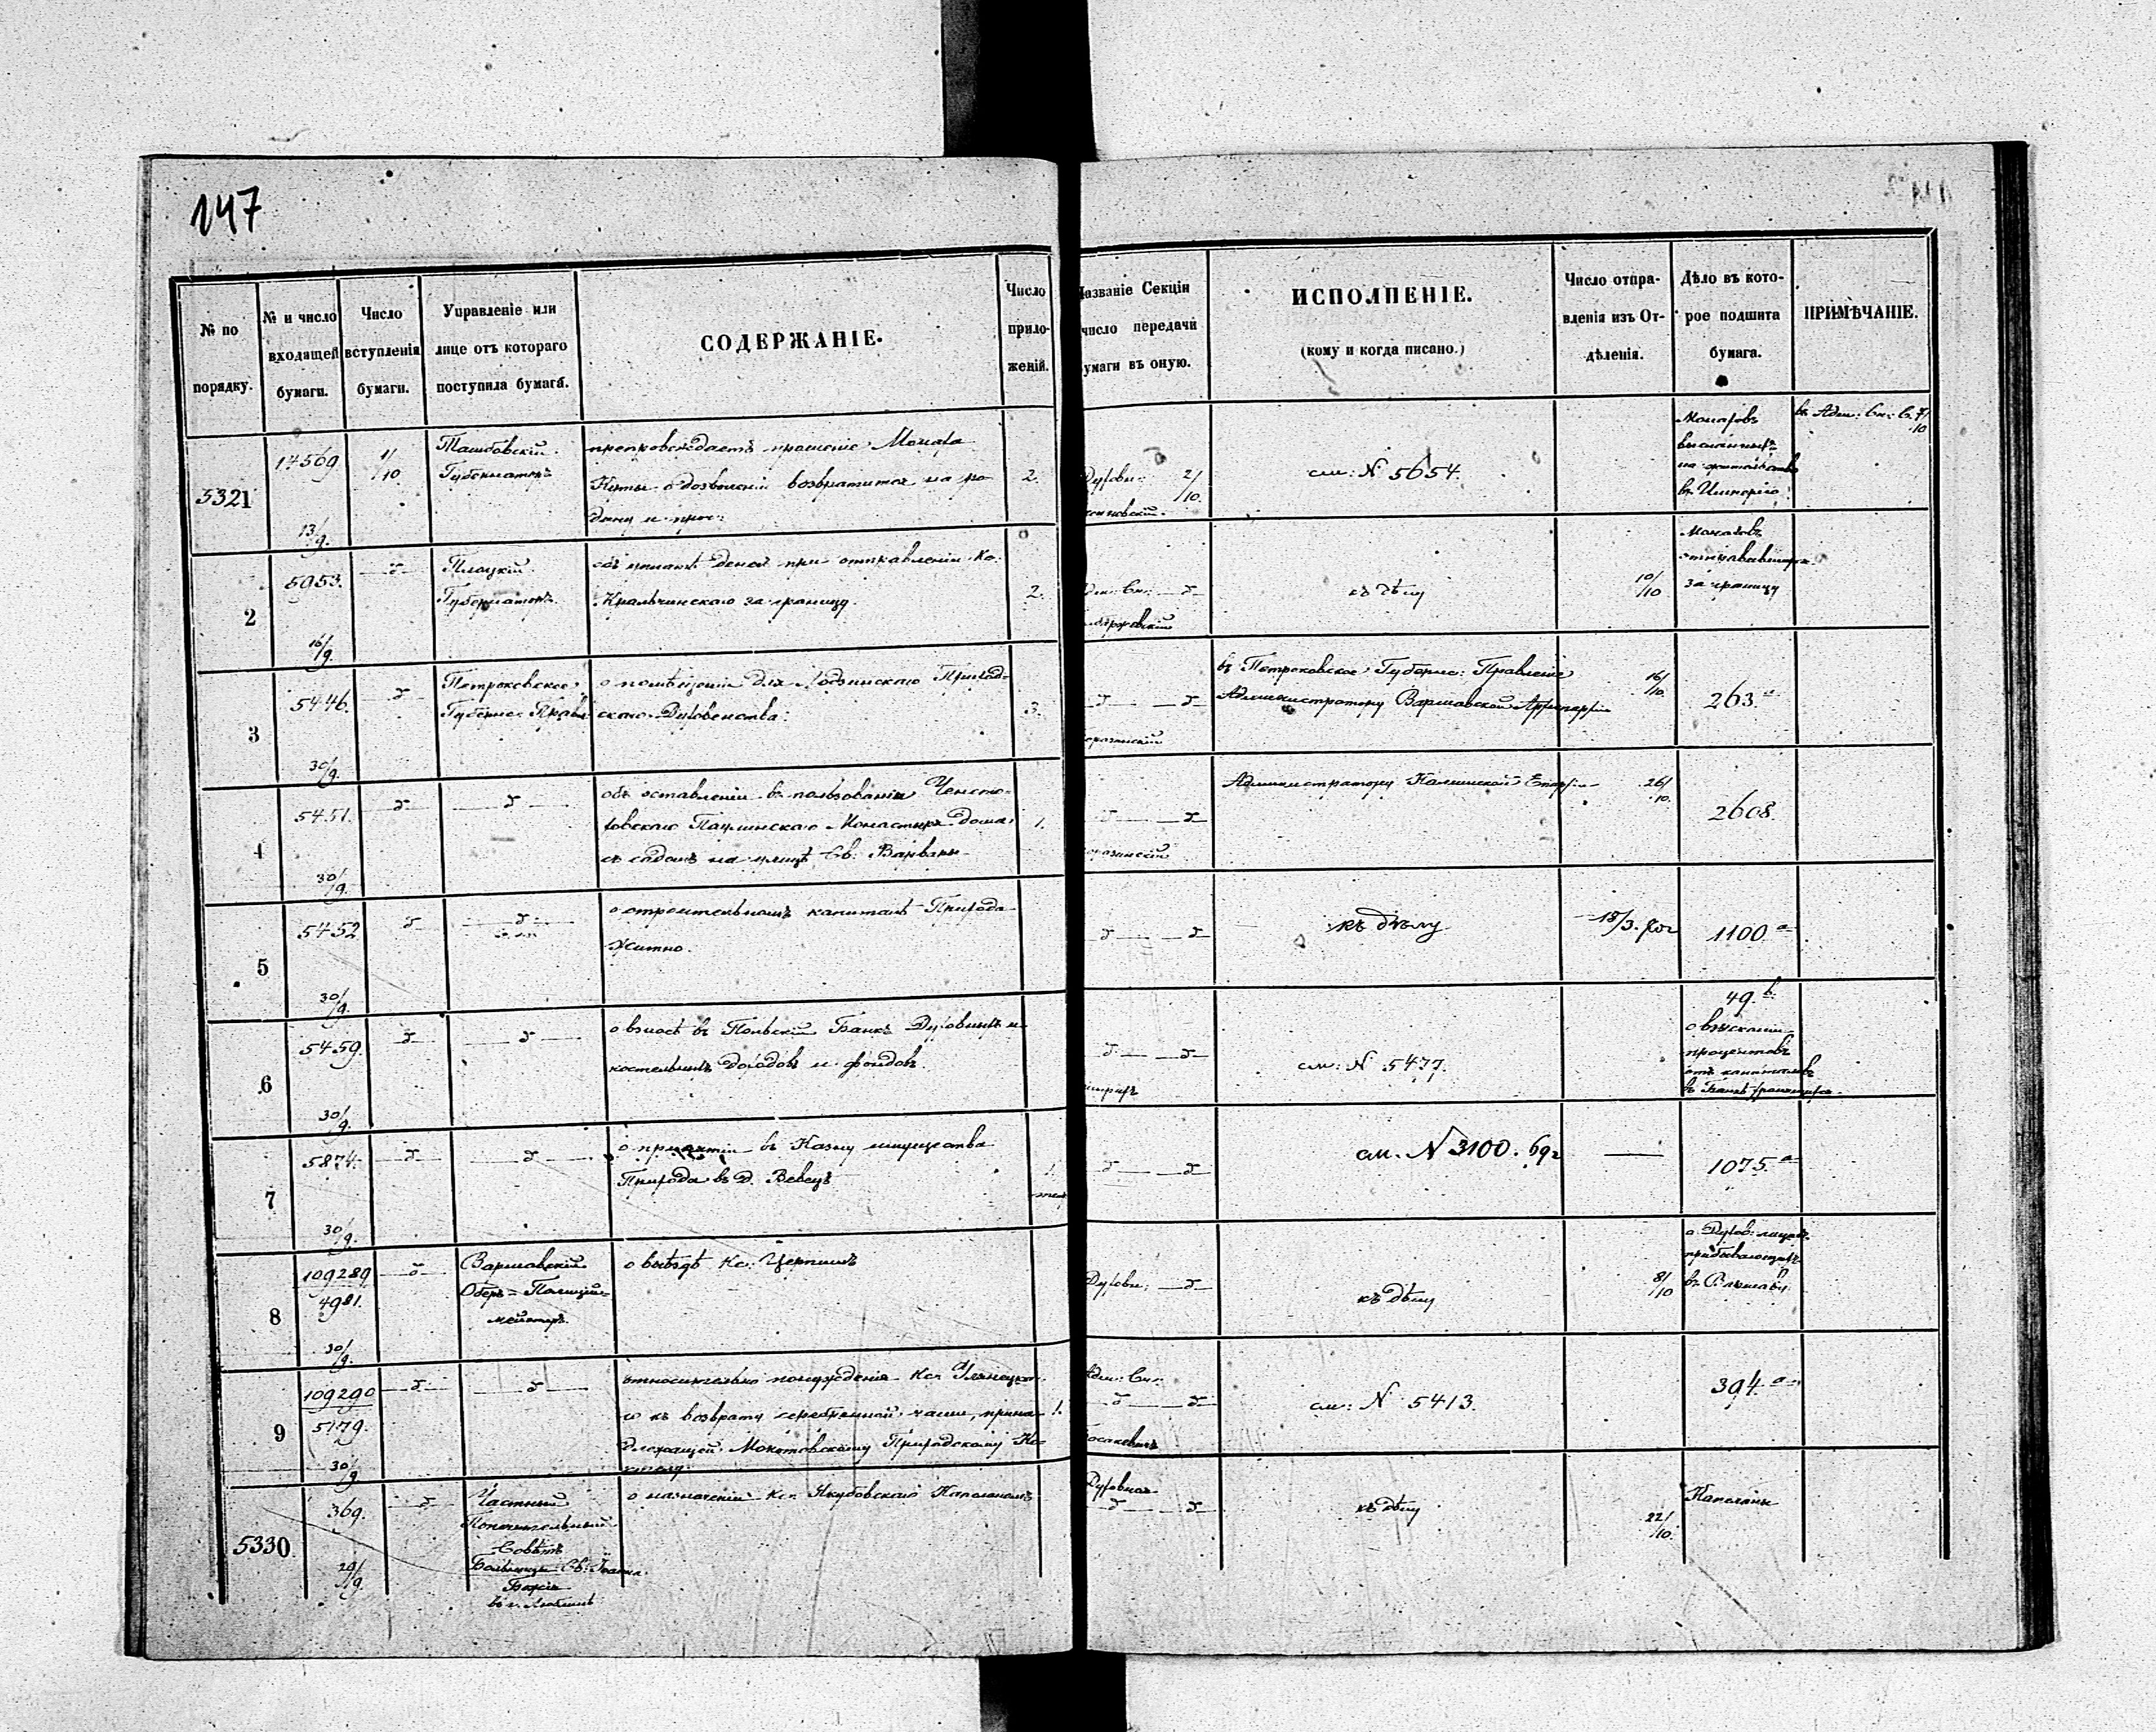 147
№ по порядку.
№ и число входящей бумаги.
Число вступленія бумаги.
Управленіе или лице отъ котораго поступила бумага.
СОДЕРЖАНІЕ.
Число прило-женій.
Названіе Секціи
число передачи
бумаги въ оную.
ИСПОЛНЕНІЕ.
(кому и когда писано.)
Число отпра-вленія изъ От-дѣленія.
Дѣло въ кото-рое подшита бумага.
ПРИМѢЧАНІЕ.
5321
17569
13/9.
1/10
Тамбовскій
Губернаторъ
препровождаетъ прошеніе Монаха
о дозволеніи возвратится на ро-
дину и проч:
2.
Духовн: 2/10.
см: № 5654.
Монаховъ
высланныхъ
на жительство
въ Имперію
2
5953.
16/9.
Плоцкій
Губернаторъ
при отправленіи Кс:
за границу.
2.
къ дѣлу
10/10
Монаховъ
за границу
3
5446.
30/9.
Петроковское
Губерн: Правл:
о помѣщеніи для Лодзинскаго Приход-
скаго Духовенства:
3.
въ Петроковское Губерн: Правленіе
Администратору Варшавской Архіепархіи
16/10.
263 а
4
5451.
30/9.
объ оставленіи въ пользованіи Ченсто-
ховскаго Паулинскаго Монастыря дома
съ садомъ на улицѣ Св: Варвары
1.
Администратору Калишской Епархіи
26/10.
2608.
5
5452
30/9.
о строительномъ капиталѣ Прихода
Житно.
къ дѣлу
18/3.
1100 а
6
5459.
30/9.
о взносѣ въ Польскій Банкъ Духовныхъ и
костельныхъ доходовъ и фондовъ.
см: № 5477.
49. b.
о взысканіи
процентовъ
отъ капиталовъ
7
5874.
30/9.
о принятіи въ Казну имущества
Прихода въ д. Вевецъ
1.
см. № 3100. 69г
1075 а
8
109289
4981.
30/9.
Варшавскій
Оберъ-Полицій-
мейстеръ
о выѣздѣ Кс:
Духовн:
къ дѣлу
8/10
о Духов: лицахъ
прибывающихъ
въ Варшаву
9
109290
5179.
30/9
относительно понужденія Кс:
го къ возврату серебрянной чаши, прина-
длежащей Мокотовскому Приходскому Ко-
стелу.
1.
Адм: Сн:
см: № 5413.
394. а
5330
369.
29/9.
Частный
Попечительный
Совѣтъ
Больницы Св: Іоанна
Божія
въ г. Люблинѣ
о назначеніи Кс: Якубовскаго Капеланомъ
Духовная
къ дѣлу
22/10.
Капеланы